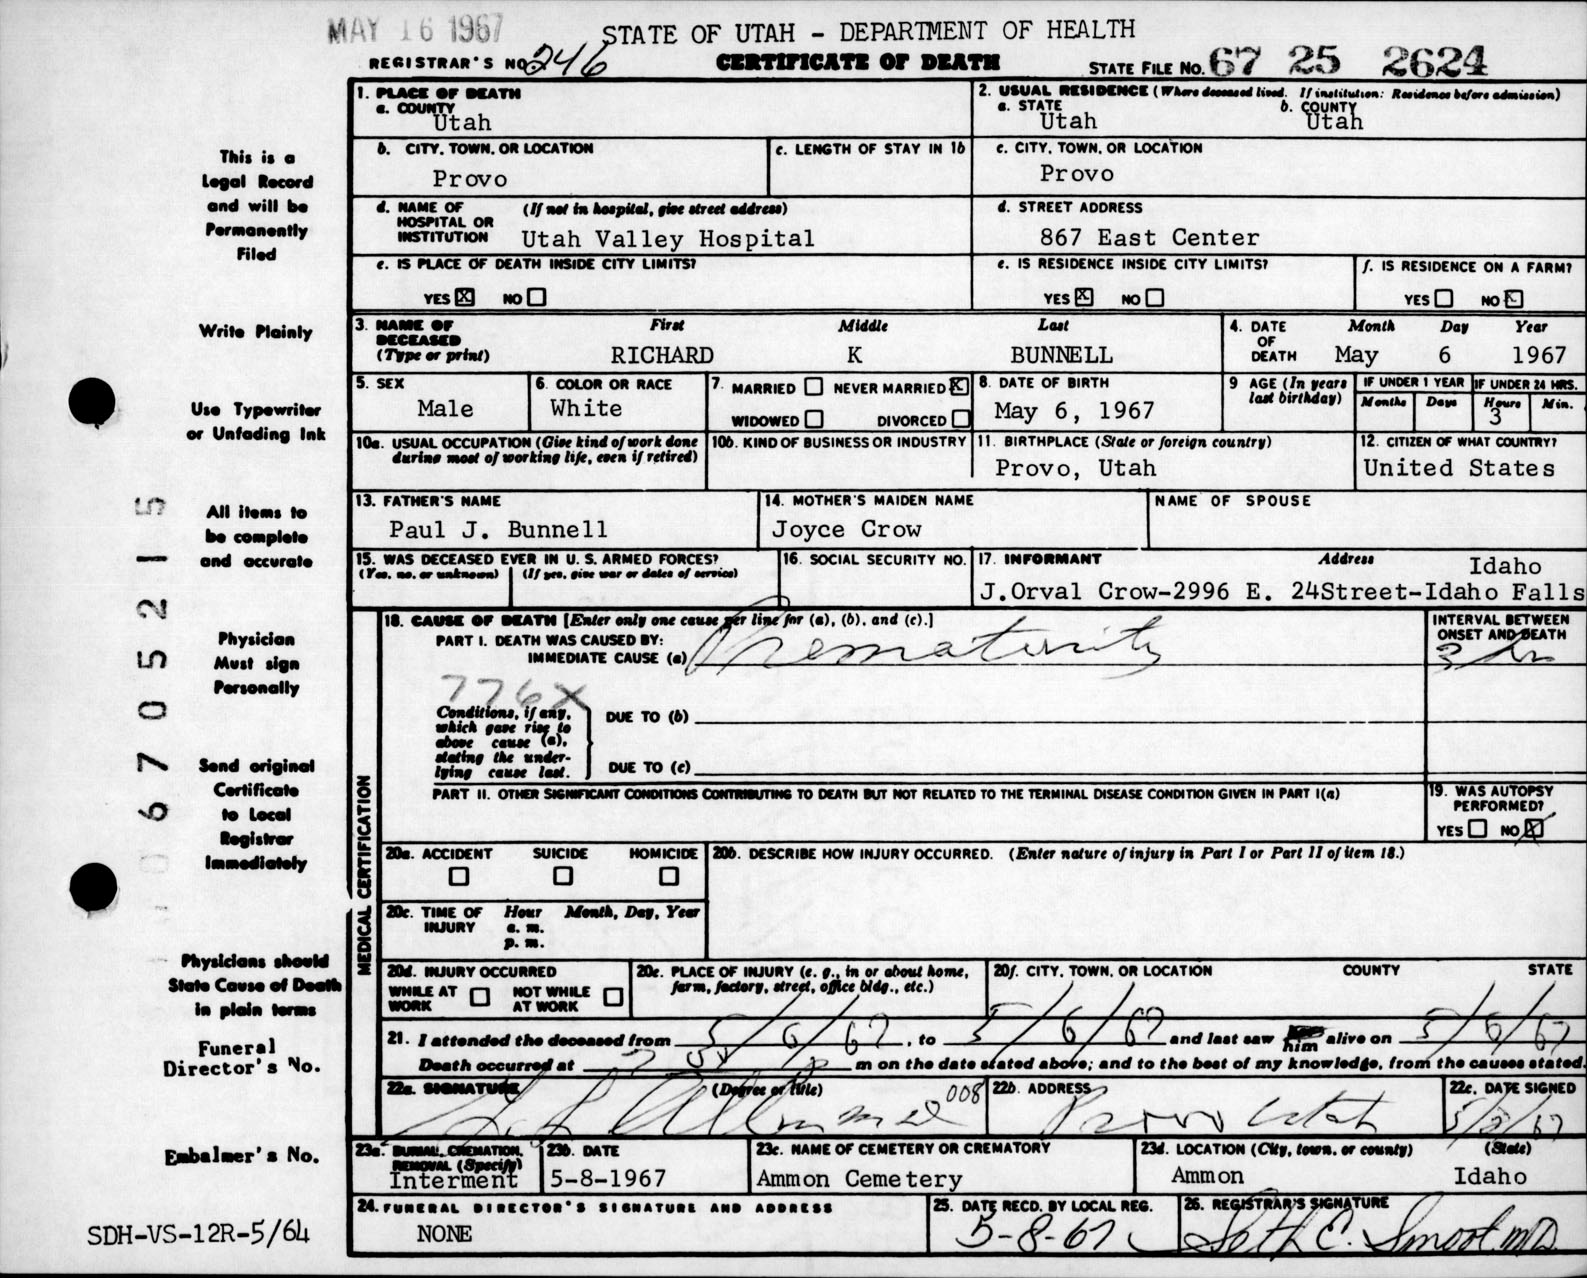 MAY 16 1967
STATE OF UTAH - DEPARTMENT OF HEALTH
REGISTRAR'S NO. 246
CERTIFICATE OF DEATH
STATE FILE NO. 67 25 2624
This is a
Legal Record
and will be
Permanently
Filed
Write Plainly
Use Typewriter
or Unfading Ink
All items to
be complete
and accurate
Physician
Must sign
Personally
Send original
Certificate
to Local
Registrar
Immediately
Physicians should
State Cause of Death
in plain terms
Funeral
Director's No.
Embalmer's No.
SDH-VS-12R-5/64
06705215
1. PLACE OF DEATH
a. COUNTY
Utah
2. USUAL RESIDENCE (Where deceased lived. If institution: Residence before admission)
a. STATE b. COUNTY
Utah Utah
b. CITY, TOWN, OR LOCATION
Provo
c. LENGTH OF STAY IN 1b
c. CITY, TOWN, OR LOCATION
Provo
d. NAME OF (If not in hospital, give street address)
HOSPITAL OR
INSTITUTION Utah Valley Hospital
d. STREET ADDRESS
867 East Center
e. IS PLACE OF DEATH INSIDE CITY LIMITS?
YES X NO
e. IS RESIDENCE INSIDE CITY LIMITS?
YES X NO
f. IS RESIDENCE ON A FARM?
YES NO X
3. NAME OF First Middle Last
DECEASED
(Type or print) RICHARD K BUNNELL
4. DATE Month Day Year
OF
DEATH May 6 1967
5. SEX
Male
6. COLOR OR RACE
White
7. MARRIED NEVER MARRIED X
WIDOWED DIVORCED
8. DATE OF BIRTH
May 6, 1967
9 AGE (In years
last birthday)
IF UNDER 1 YEAR IF UNDER 24 HRS.
Months Days Hours Min.
3
10a. USUAL OCCUPATION (Give kind of work done
during most of working life, even if retired)
10b. KIND OF BUSINESS OR INDUSTRY
11. BIRTHPLACE (State or foreign country)
Provo, Utah
12. CITIZEN OF WHAT COUNTRY?
United States
13. FATHER'S NAME
Paul J. Bunnell
14. MOTHER'S MAIDEN NAME
Joyce Crow
NAME OF SPOUSE
15. WAS DECEASED EVER IN U. S. ARMED FORCES?
(Yes, no. or unknown) (If yes, give war or dates of service)
16. SOCIAL SECURITY NO.
17. INFORMANT Address Idaho
J.Orval Crow-2996 E. 24Street-Idaho Falls
MEDICAL CERTIFICATION
18. CAUSE OF DEATH [Enter only one cause per line for (a), (b), and (c).]
PART I. DEATH WAS CAUSED BY:
IMMEDIATE CAUSE (a) Prematurity
INTERVAL BETWEEN
ONSET AND DEATH
3 hr
776X
Conditions, if any,
which gave rise to
above cause (a),
stating the under-
lying cause last.
DUE TO (b)
DUE TO (c)
PART II. OTHER SIGNIFICANT CONDITIONS CONTRIBUTING TO DEATH BUT NOT RELATED TO THE TERMINAL DISEASE CONDITION GIVEN IN PART I(a)
19. WAS AUTOPSY
PERFORMED?
YES NO X
20a. ACCIDENT SUICIDE HOMICIDE
20b. DESCRIBE HOW INJURY OCCURRED. (Enter nature of injury in Part I or Part II of item 18.)
20c. TIME OF Hour Month, Day, Year
INJURY a. m.
p. m.
20d. INJURY OCCURRED
WHILE AT NOT WHILE
WORK AT WORK
20e. PLACE OF INJURY (e. g., in or about home,
farm, factory, street, office bldg., etc.)
20f. CITY, TOWN, OR LOCATION COUNTY STATE
21. I attended the deceased from 5/6/67, to 5/6/67 and last saw him alive on 5/6/67
Death occurred at 7 P m on the date stated above; and to the best of my knowledge, from the causes stated.
22a. SIGNATURE (Degree or title) 008
MD
22b. ADDRESS
Provo Utah
22c. DATE SIGNED
23a. BURIAL, CREMATION,
REMOVAL (Specify)
Interment
23b. DATE
5-8-1967
23c. NAME OF CEMETERY OR CREMATORY
Ammon Cemetery
23d. LOCATION (City, town, or county) (State)
Ammon Idaho
24. FUNERAL DIRECTOR'S SIGNATURE AND ADDRESS
NONE
25. DATE RECD. BY LOCAL REG.
5-8-67
26. REGISTRAR'S SIGNATURE
Seth E. Smoot, M.D.